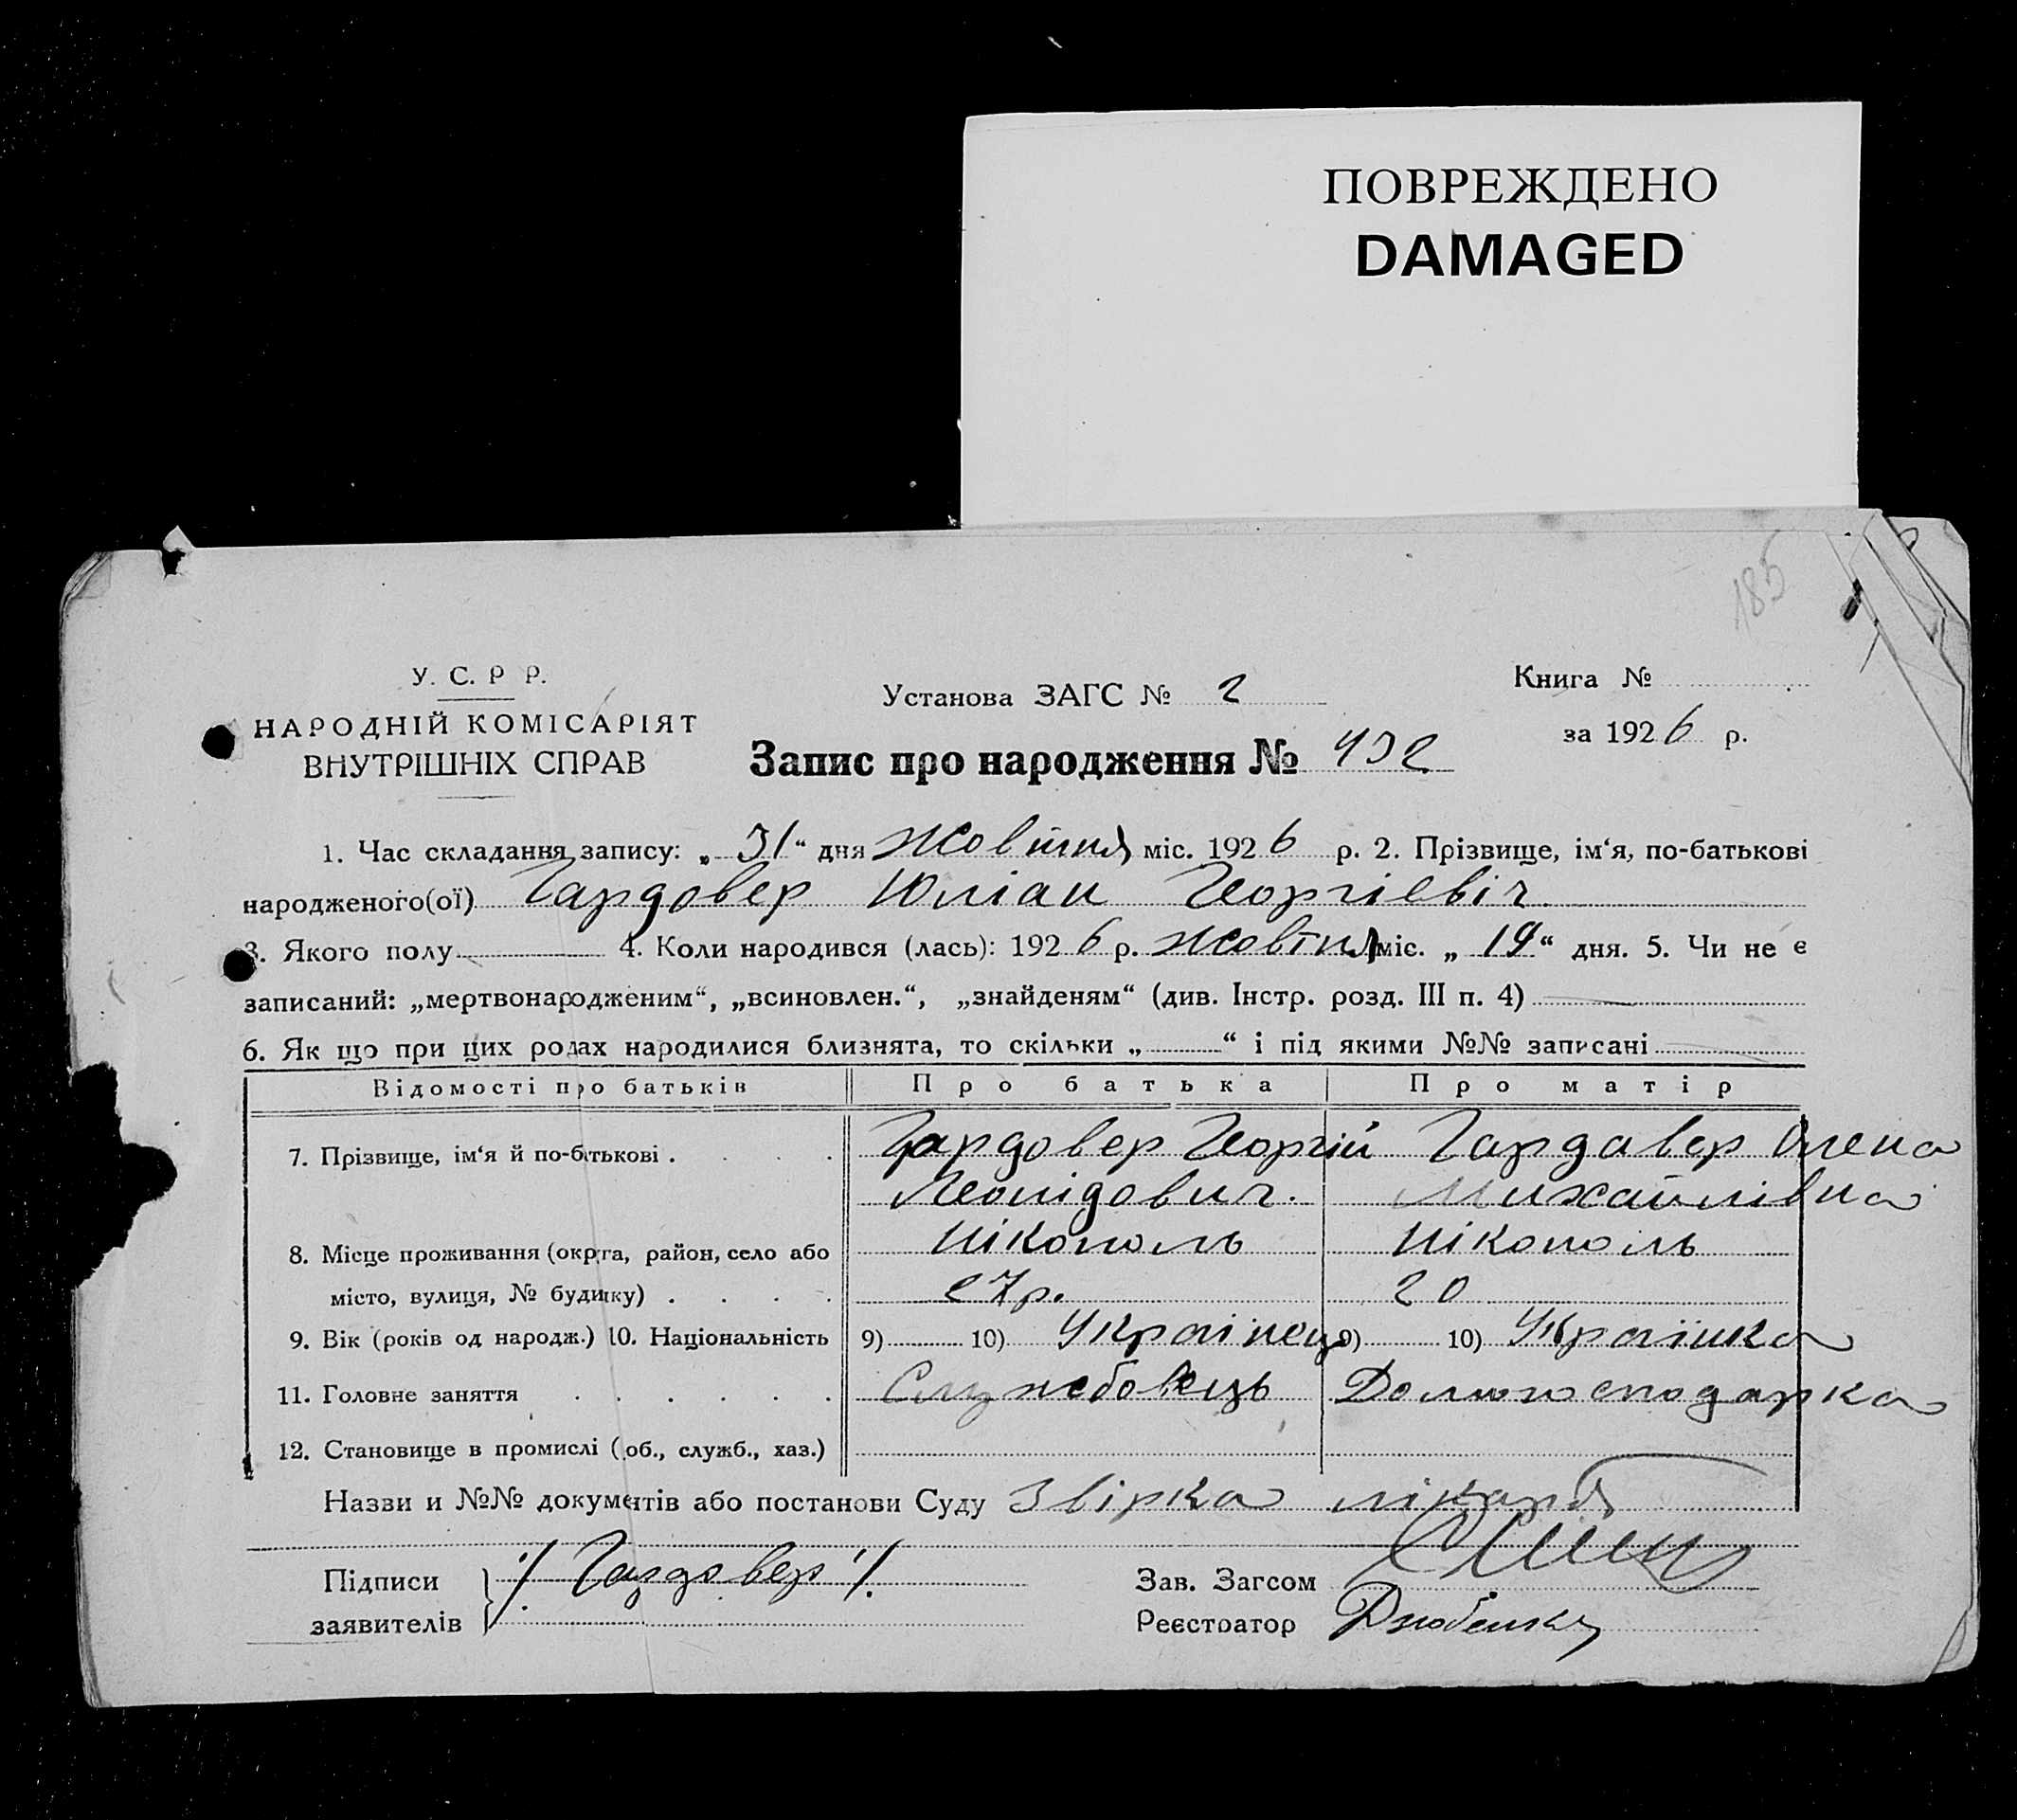 ПОВРЕЖДЕНО
DAMAGED
185
У. С. Р Р.
НАРОДНІЙ КОМІСАРІЯТ
ВНУТРІШНІХ СПРАВ
Установа ЗАГС № 2
Книга №
за 1926 р.
Запис про народження № 432
1. Час складання запису: „31“ дня Жовтня міс. 1926 р. 2. Прізвище, ім‘я, по-батькові
народженого(ої) Гардовер Юліан Георгіевіч
3. Якого полу 4. Коли народився (лась): 1926 р. Жовтня міс. „19“ дня. 5. Чи не є
записаний: „мертвонародженим“, „всиновлен.“, „знайденям“ (див. Інстр. розд. III п. 4)
6. Як що при цих родах народилися близнята, то скільки „ “ і під якими №№ записані
Відомості про батьків Про батька Про матір
7. Прізвище, ім‘я й по-батькові . Гардовер Георгій Гардавер Олена
Леонідович. Михайлівна
8. Місце проживання (округа, район, село або Нікополь Нікополь
місто, вулиця, № будинку) . 27 р. 20
9. Вік (років од народж.) 10. Національність 9) 10) Українець 9) 10) Українка
11. Головне заняття Службовець Домогосподарка
12. Становище в промислі (роб., служб., хаз.)
Назви и №№ документів або постанови Суду Звірка лікаря
Підписи /. Гардовер /.
заявителів
Зав. Загсом
Реєстратор